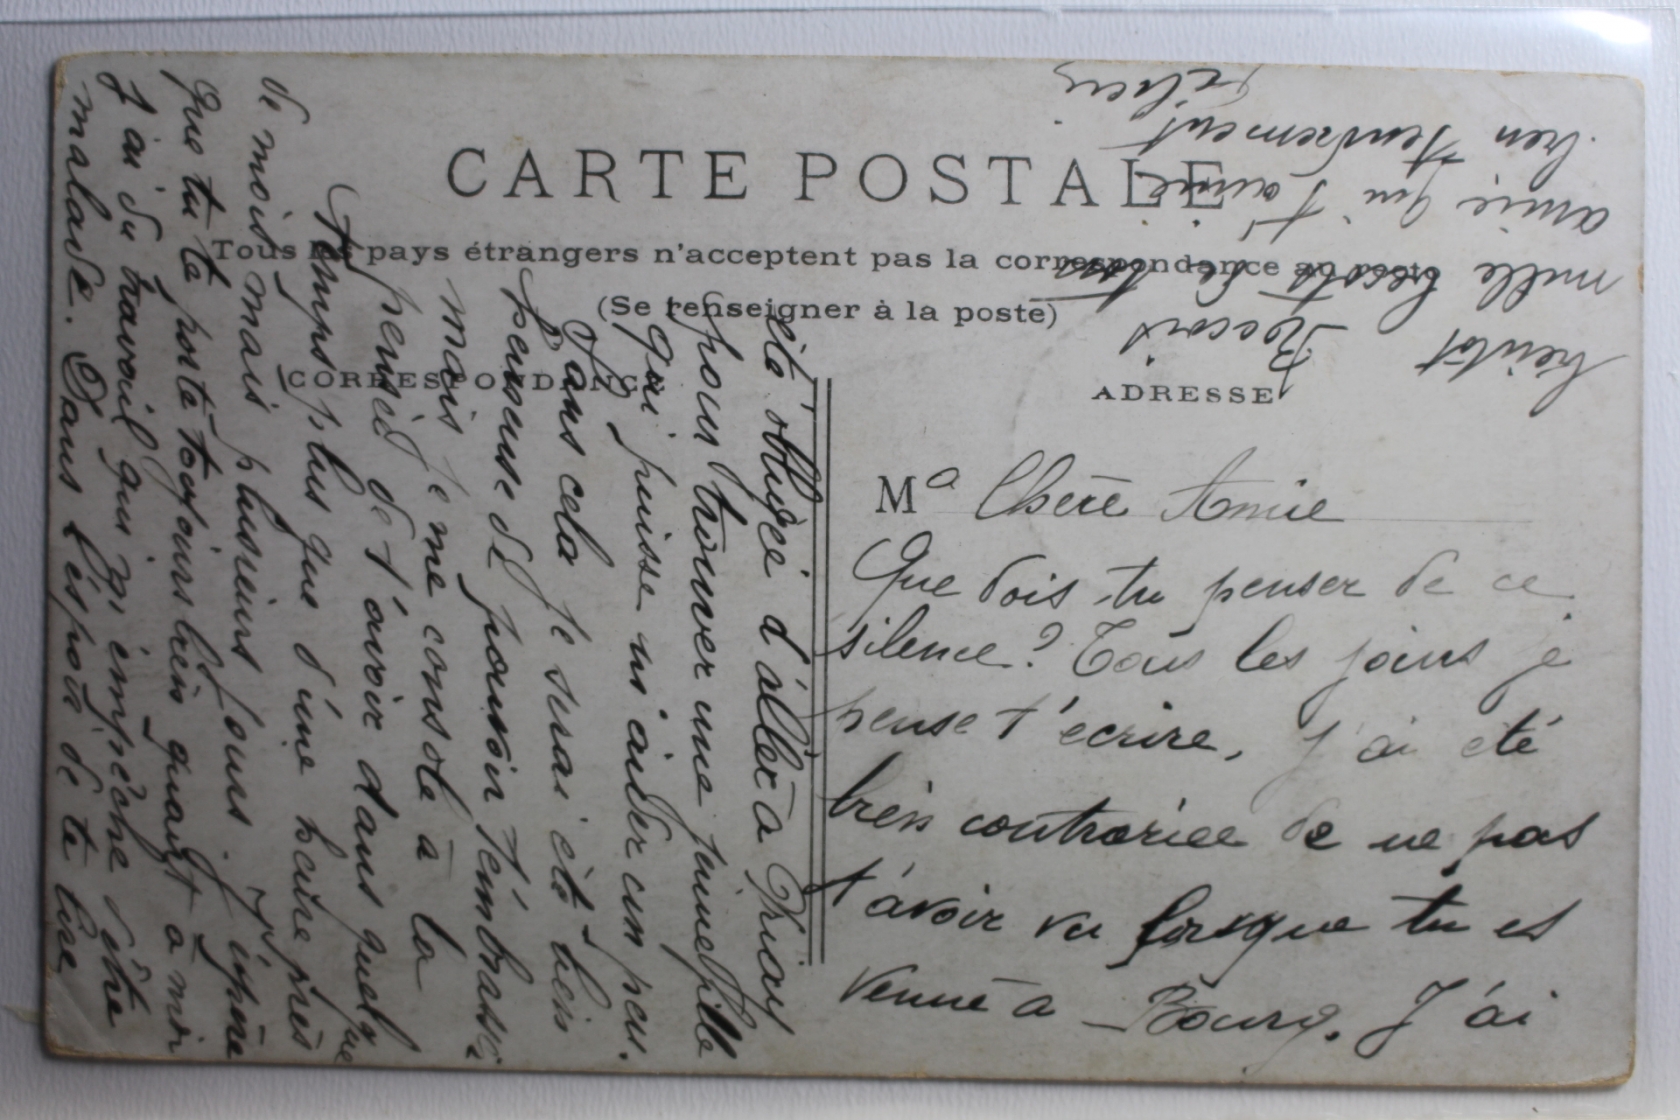 CARTE POSTALE
Tous les pays étrangers n'acceptent pas la correspondance au recto
(Se renseigner à la poste)
CORRESPONDANCE
ADRESSE
Ma Chère Amie
Que dois tu penser de ce
silence? Tous les jours je
pense t'ecrire, J'ai eté
bien contrariee de ne pas
t'avoir vu lorsque tu es
venue a Bourg. J'ai
été obligé d'aller a
pour trouver une jeune fille
qui puisse m'aider un peu.
Sans cela je serai été bien
heureuse de pouvoir t'embrasser
mais je me console à la
pensée de t'avoir dans quelque
temps plus que d'une heure près
de moi mais plusieurs jours. J'éspère
que tu ta porte toujours bien quant à moi
J'ai du travail qui m'empêche d'être
malade. Dans l'éspoir de te lire
bientot Recois
mille becots de ton
amie qui t'aime
bien tendrement